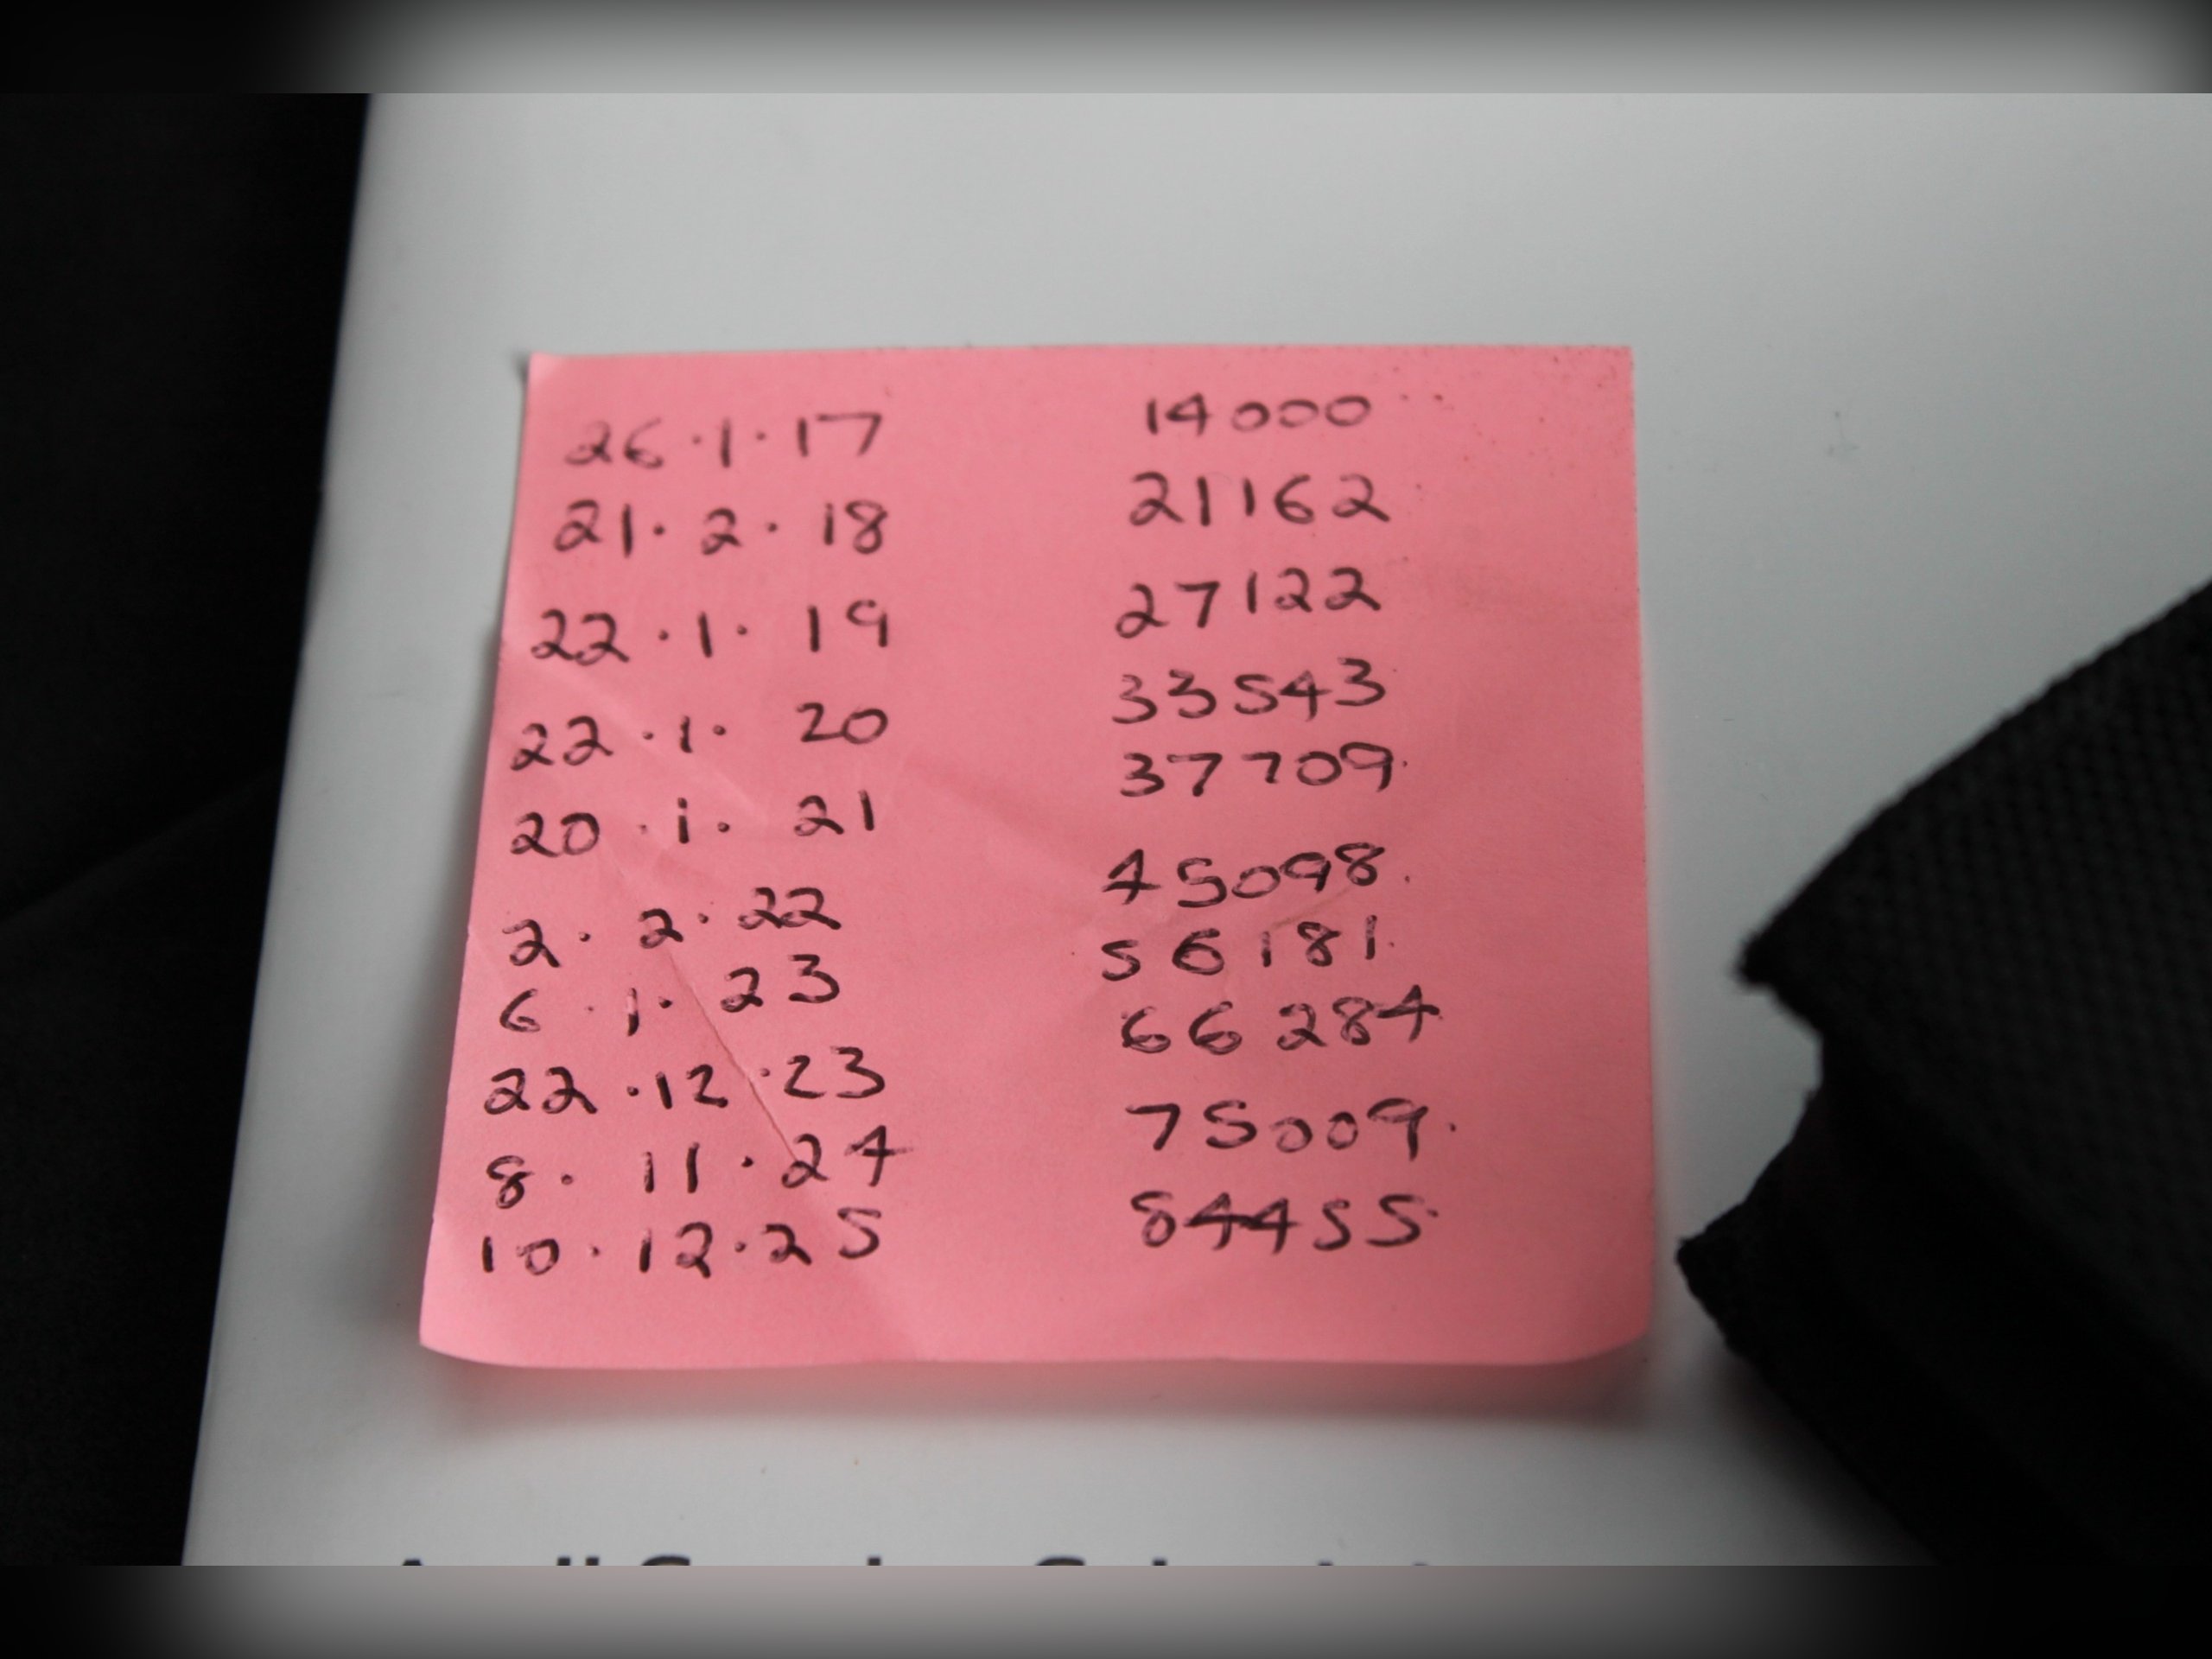 26.1.17 14000
21.2.18 21162
22.1.19 27122
22.1.20 33543
20.1.21 37709
2.2.22 45098
6.1.23 56181
22.12.23 66284
8.11.24 75009
10.12.25 84455